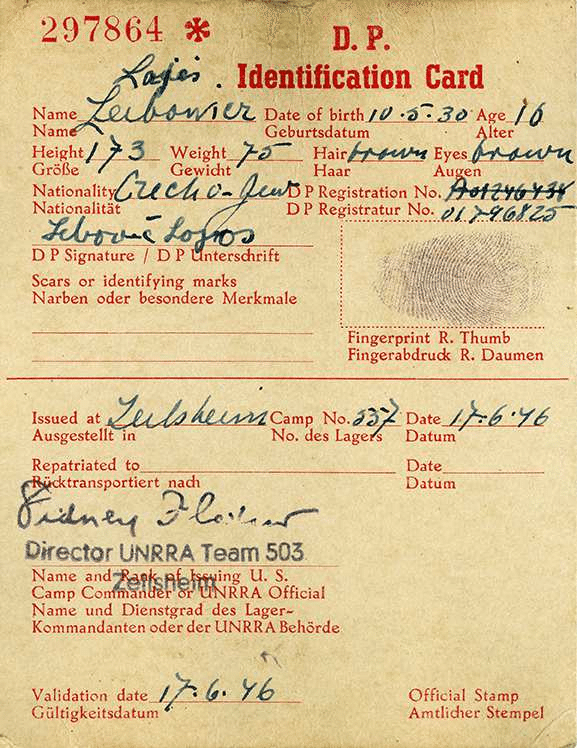 297864 *
D. P.
Identification Card
Lajos
Name Leibowicz Date of birth 10.5.30 Age 16
Name Geburtsdatum Alter
Height 173 Weight 75 Hair brown Eyes brown
Größe Gewicht Haar Augen
Nationality Czecho-Jew D P Registration No.
Nationalität D P Registratur No. 01746825
D P Signature / D P Unterschrift
Scars or identifying marks
Narben oder besondere Merkmale
Fingerprint R. Thumb
Fingerabdruck R. Daumen
Issued at Zeilsheim Camp No. 557 Date 17.6.46
Ausgestellt in No. des Lagers Datum
Repatriated to Date
Rücktransportiert nach Datum
Sidney
Director UNRRA Team 503
Zeilsheim
Name and Rank of Issuing U. S.
Camp Commander or UNRRA Official
Name und Dienstgrad des Lager-
Kommandanten oder der UNRRA Behörde
Validation date 17.6.46 Official Stamp
Gültigkeitsdatum Amtlicher Stempel